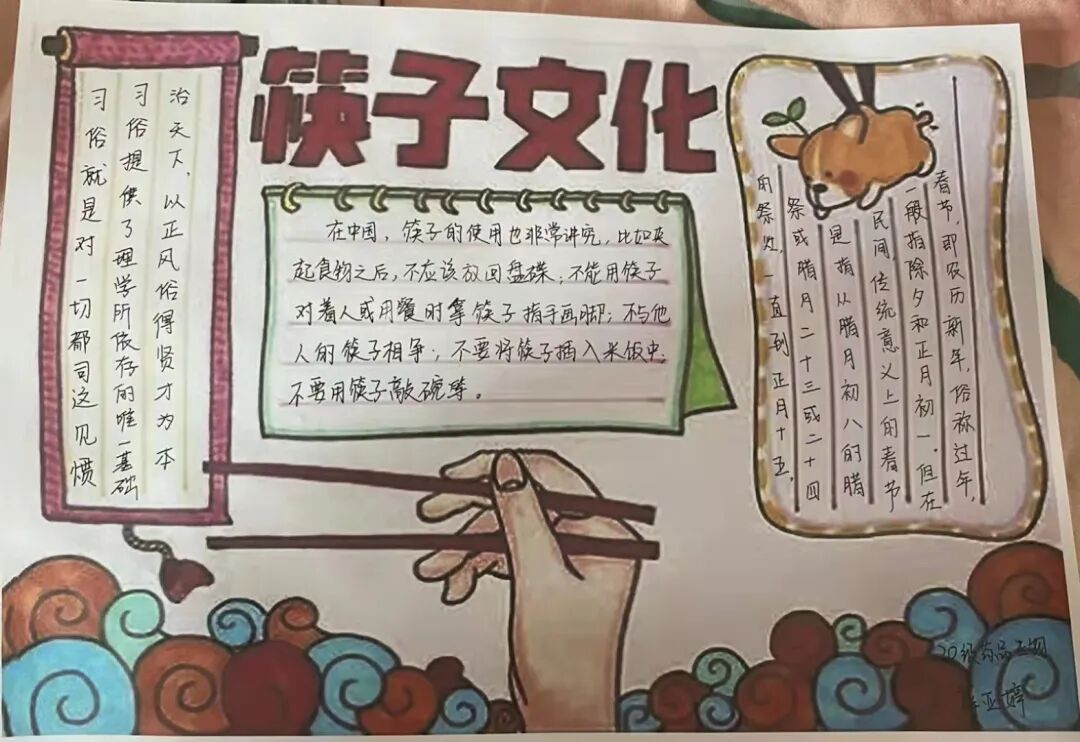 筷子文化
治天下,以正风俗得贤才为本
习俗提供了理学所依存的唯一基础
习俗就是对一切都司这见惯
在中国,筷子的使用也非常讲究,比如夹
起食物之后,不应该放回盘碟,不能用筷子
对着人或用餐时拿筷子指手画脚;不与他
人的筷子相争;不要将筷子插入米饭中;
不要用筷子敲碗等。
春节,即农历新年,俗称过年,
一般指除夕和正月初一。但在
民间,传统意义上的春节
是指从腊月初八的腊
祭或腊月二十三或二十四
的祭灶,一直到正月十五,
20级药品
亚婷